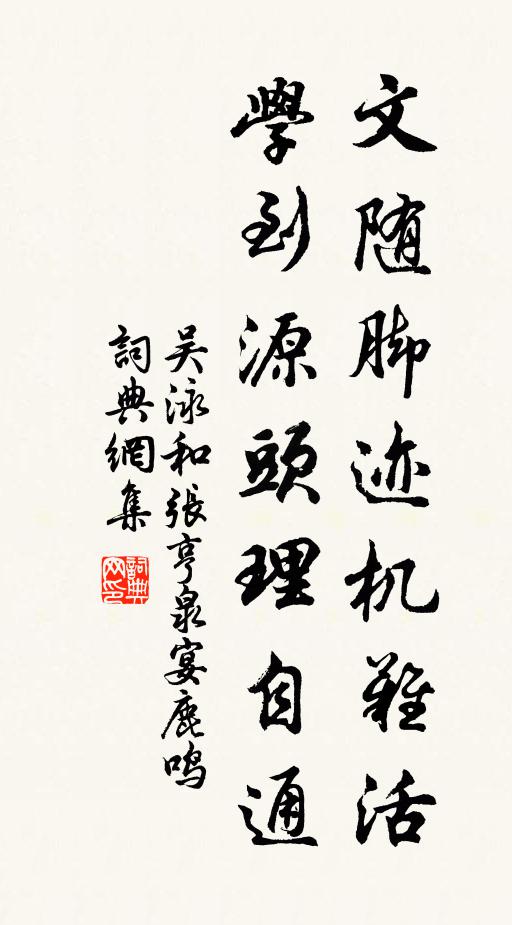 文随脚迹机難活
學到源頭理自通
吴泳和張亨泉宴鹿鸣
詞典網集
詞典网印